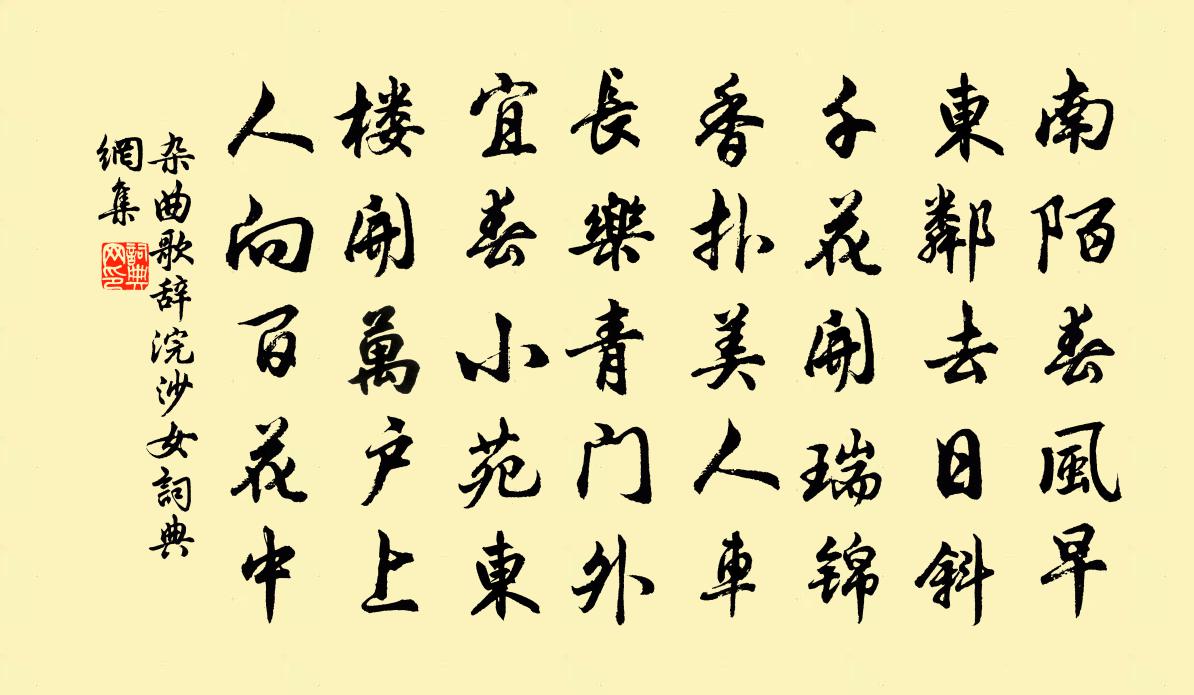 南陌春風早
東鄰去日斜
千花開瑞锦
香扑美人車
長樂青门外
宜春小苑東
楼開萬户上
人向百花中
杂曲歌辞浣沙女詞典
網集
詞典
网印